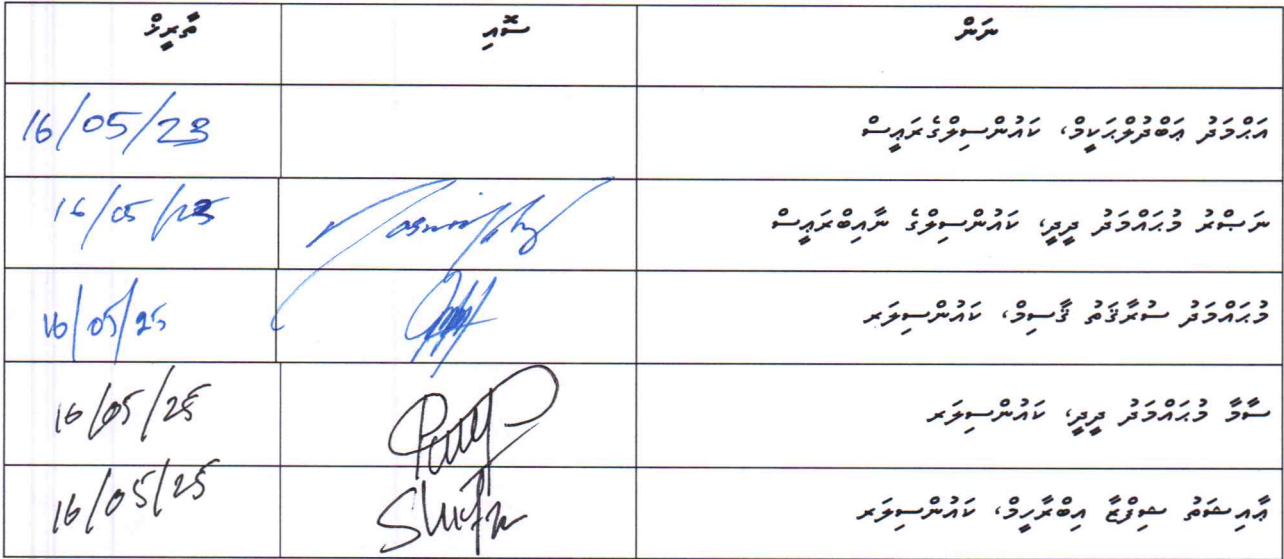 ނަން ސޮއި ތާރީޚް
އަޙްމަދު ޢަބްދުލްޙަކީމް، ކައުންސިލްގެރަޢީސް 16/05/23
ނަޞްރު މުޙައްމަދު ދީދީ، ކައުންސިލްގެ ނާއިބްރަޢީސް 16/05/25
މުޙައްމަދު ސުރާޤަތު ޤާސިމް، ކައުންސިލަރ 16/05/25
ސާމާ މުޙައްމަދު ދީދީ، ކައުންސިލަރ 16/05/25
ޢާއިޝަތު ޝިފްޒާ އިބްރާހީމް، ކައުންސިލަރ 16/05/25